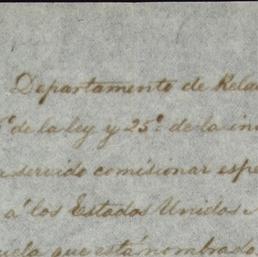 Departamento de Rela
º de la ley y 25º de la in
servido comisionar espe
á los Estados Unidos
que está nombrado